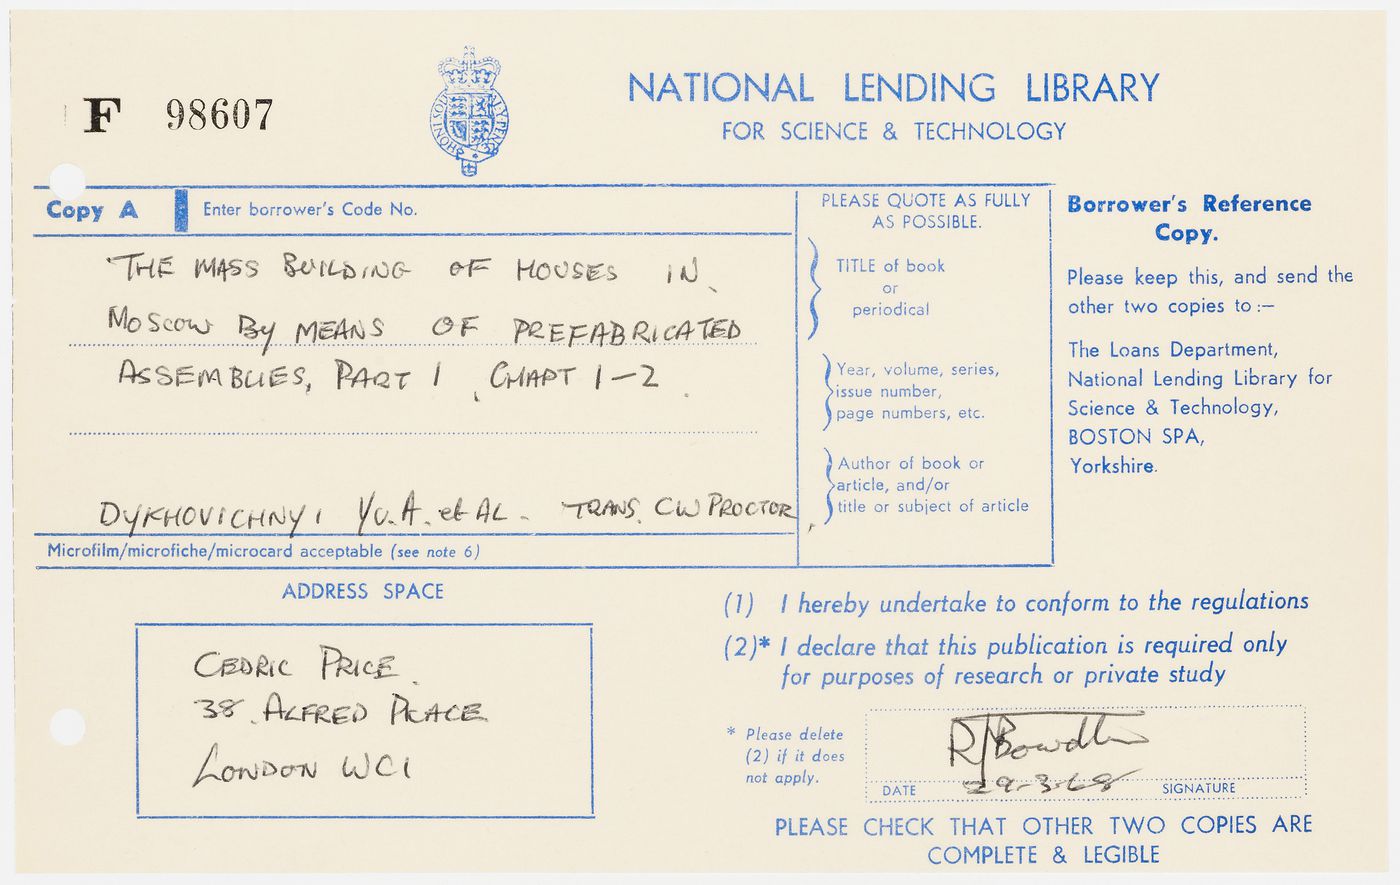 F 98607
HONI SOIT
NATIONAL LENDING LIBRARY
FOR SCIENCE & TECHNOLOGY
Copy A
Enter borrower's Code No.
THE MASS BUILDING OF HOUSES IN
MOSCOW BY MEANS OF PREFABRICATED
ASSEMBLIES, PART 1, CHAPT 1-2.
DYKHOVICHNYI YU.A. et AL. TRANS. CW PROCTOR,
Microfilm/microfiche/microcard acceptable (see note 6)
PLEASE QUOTE AS FULLY
AS POSSIBLE.
TITLE of book
or
periodical
Year, volume, series,
issue number,
page numbers, etc.
Author of book or
article, and/or
title or subject of article
Borrower's Reference
Copy.
Please keep this, and send the
other two copies to :—
The Loans Department,
National Lending Library for
Science & Technology,
BOSTON SPA,
Yorkshire.
ADDRESS SPACE
CEDRIC PRICE.
38. ALFRED PLACE
LONDON WC1
(1) I hereby undertake to conform to the regulations
(2)* I declare that this publication is required only
for purposes of research or private study
* Please delete
(2) if it does
not apply.
29-3-68
DATE
SIGNATURE
PLEASE CHECK THAT OTHER TWO COPIES ARE
COMPLETE & LEGIBLE